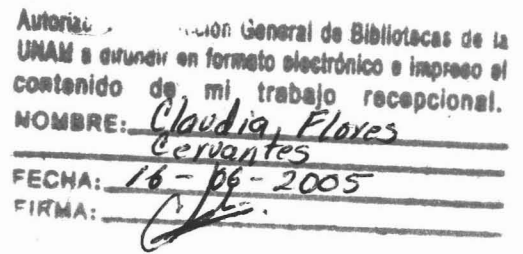 General de Bibliotecas de la
UNAM a difundir en formato electrónico e impreso el
contenido de mi trabajo recepcional.
NOMBRE: Claudia Flores
Cervantes
FECHA: 16-06-2005
FIRMA: